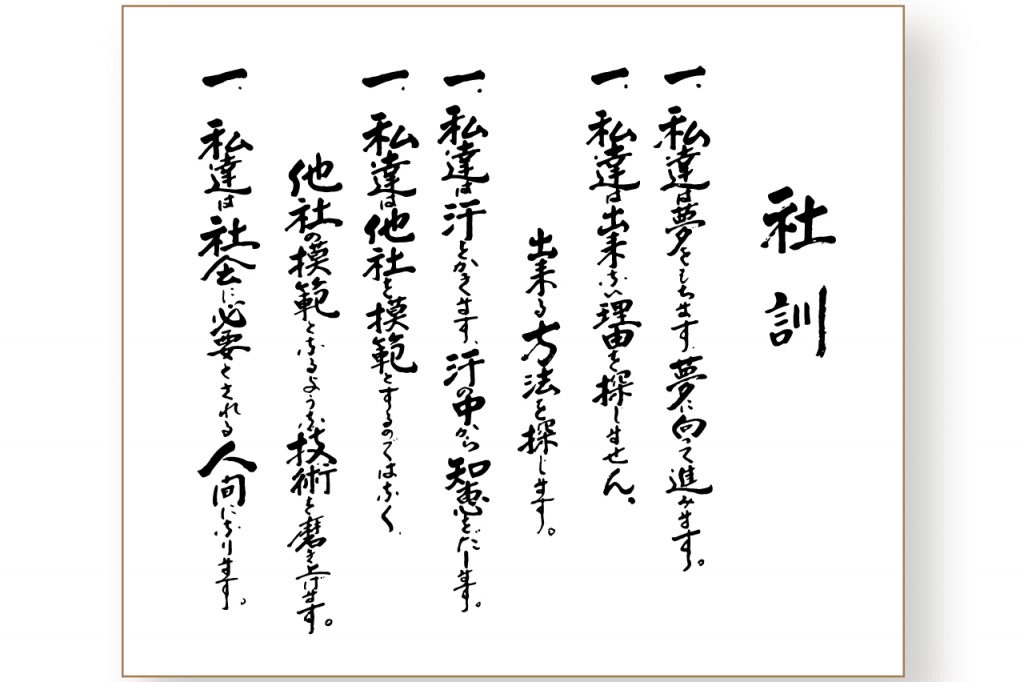 社訓
一、私達は夢をもちます、夢に向って進みます。
一、私達は出来ない理由を探しません。
出来る方法を探します。
一、私達は汗とかきます、汗の中から知恵をだします。
一、私達は他社を模範とするのではなく、
他社の模範となるような技術を磨き上げます。
一、私達は社会に必要とされる人間になります。